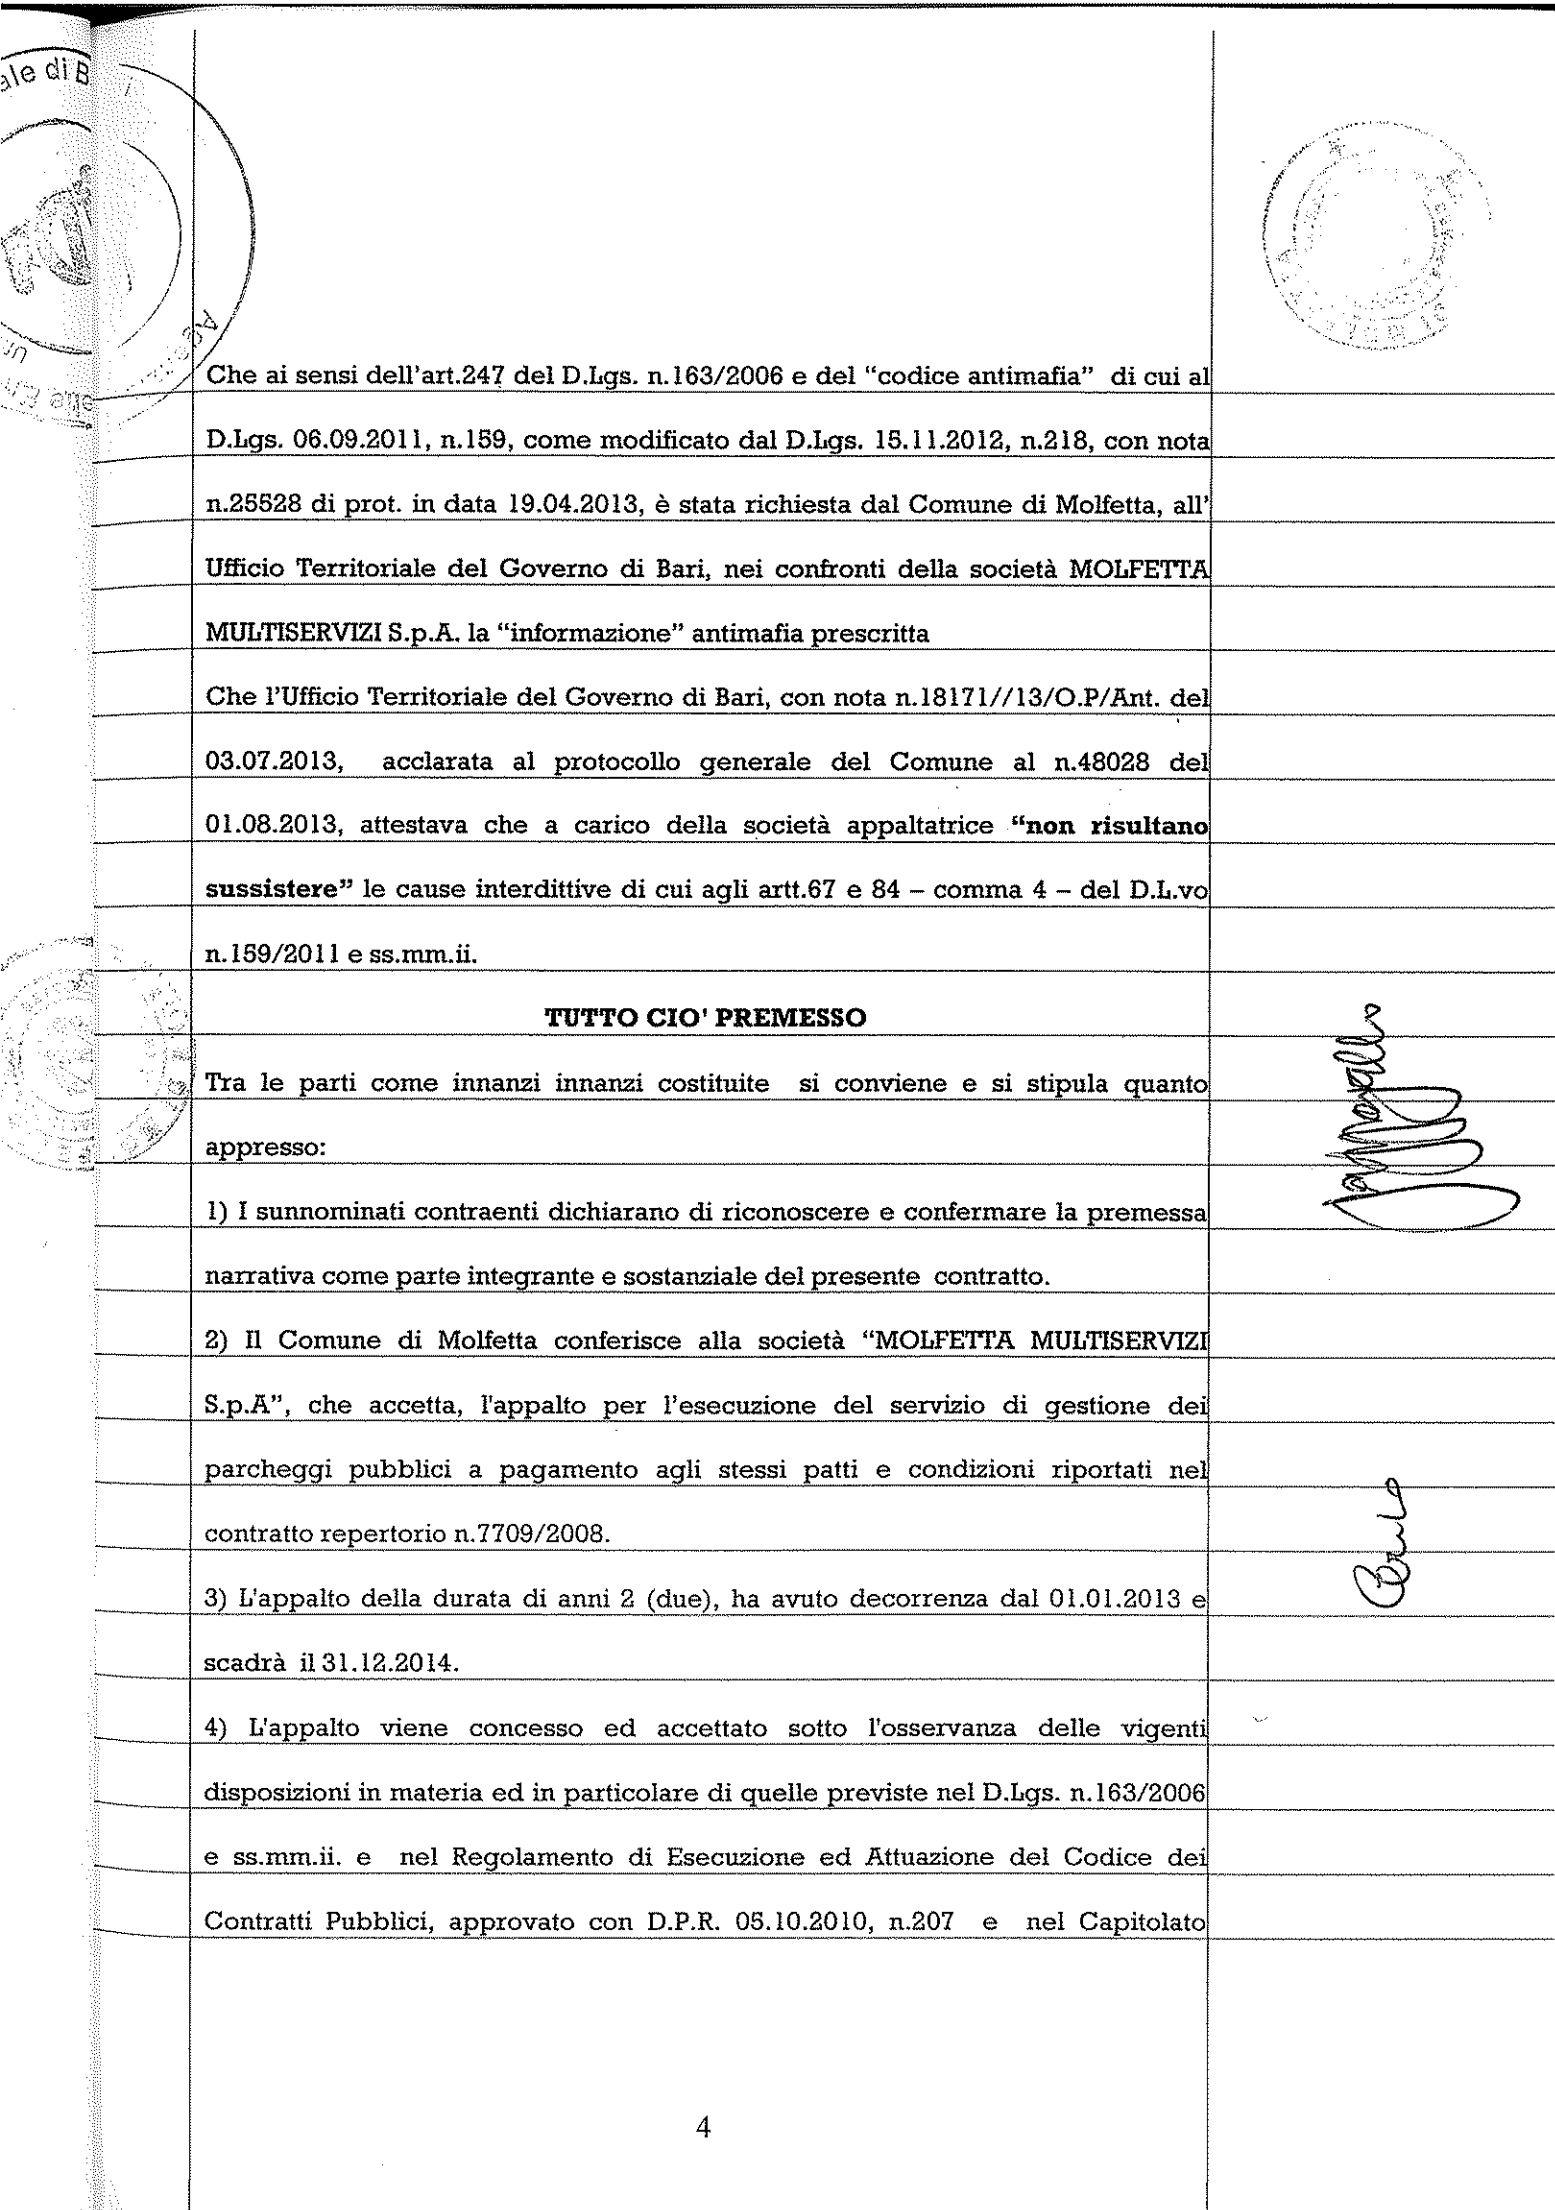 ale di B
Che ai sensi dell'art.247 del D.Lgs. n.163/2006 e del “codice antimafia” di cui al
D.Lgs. 06.09.2011, n.159, come modificato dal D.Lgs. 15.11.2012, n.218, con nota
n.25528 di prot. in data 19.04.2013, è stata richiesta dal Comune di Molfetta, all'
Ufficio Territoriale del Governo di Bari, nei confronti della società MOLFETTA
MULTISERVIZI S.p.A. la “informazione” antimafia prescritta
Che l'Ufficio Territoriale del Governo di Bari, con nota n.18171//13/O.P/Ant. del
03.07.2013, acclarata al protocollo generale del Comune al n.48028 del
01.08.2013, attestava che a carico della società appaltatrice “non risultano
sussistere” le cause interdittive di cui agli artt.67 e 84 – comma 4 – del D.L.vo
n.159/2011 e ss.mm.ii.
TUTTO CIO' PREMESSO
Tra le parti come innanzi innanzi costituite si conviene e si stipula quanto
appresso:
1) I sunnominati contraenti dichiarano di riconoscere e confermare la premessa
narrativa come parte integrante e sostanziale del presente contratto.
2) Il Comune di Molfetta conferisce alla società “MOLFETTA MULTISERVIZI
S.p.A”, che accetta, l'appalto per l'esecuzione del servizio di gestione dei
parcheggi pubblici a pagamento agli stessi patti e condizioni riportati nel
contratto repertorio n.7709/2008.
3) L'appalto della durata di anni 2 (due), ha avuto decorrenza dal 01.01.2013 e
scadrà il 31.12.2014.
4) L'appalto viene concesso ed accettato sotto l'osservanza delle vigenti
disposizioni in materia ed in particolare di quelle previste nel D.Lgs. n.163/2006
e ss.mm.ii. e nel Regolamento di Esecuzione ed Attuazione del Codice dei
Contratti Pubblici, approvato con D.P.R. 05.10.2010, n.207 e nel Capitolato
4